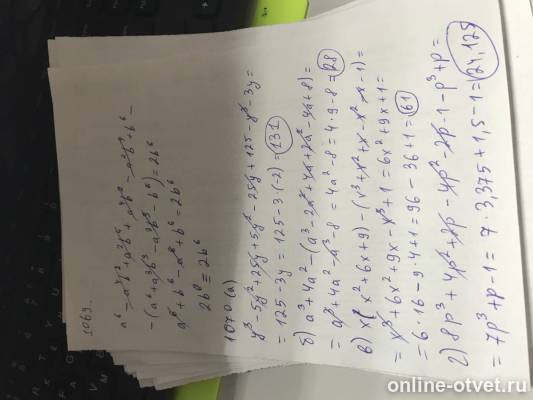 1069.
a⁶ - a³b² + a²b⁶ + a³b² - a²b⁶ + b⁶ -
- (a⁶ + a³b³ - a³b³ - b⁶) = 2b⁶
a⁶ + b⁶ - a⁶ + b⁶ = 2b⁶
2b⁶ = 2b⁶
1070 (a)
y³ - 5y² + 25y + 5y² - 25y + 125 - y³ - 3y =
= 125 - 3y = 125 - 3·(-2) = 131
б) a³ + 4a² - (a³ - 2a² + 4a + 2a² - 4a + 8) =
= a³ + 4a² - a³ - 8 = 4a² - 8 = 4·9 - 8 = 28
в) x(x² + 6x + 9) - (x³ + x² + x - x² - x - 1) =
= x³ + 6x² + 9x - x³ + 1 = 6x² + 9x + 1 =
= 6·16 - 9·4 + 1 = 96 - 36 + 1 = 61
г) 8p³ + 4p² + 2p - 4p² - 2p - 1 - p³ + p =
= 7p³ + p - 1 = 7·3,375 + 1,5 - 1 = 24,125
online-otvet.ru